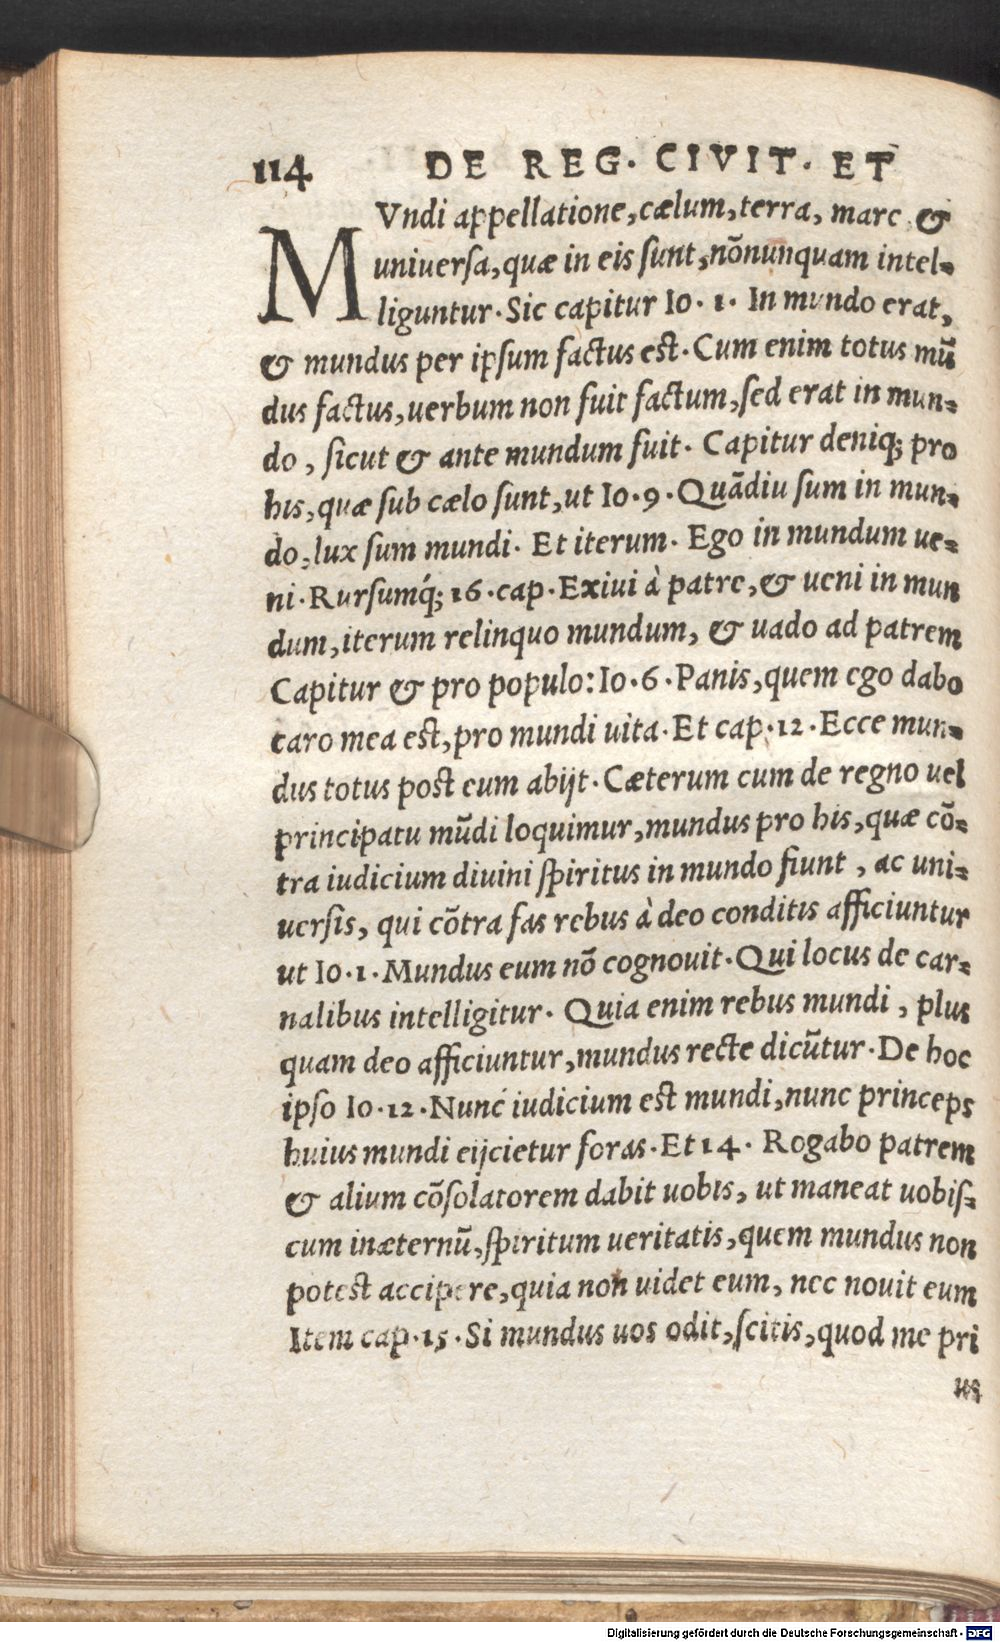 114 DE REG. CIVIT. ET
MVndi appellatione, cælum, terra, mare &
uniuersa, quæ in eis sunt, nõnunquam intel-
liguntur. Sic capitur Io. 1. In mundo erat,
& mundus per ipsum factus est. Cum enim totus mũ
dus factus, uerbum non fuit factum, sed erat in mun-
do, sicut & ante mundum fuit. Capitur deniq; pro
his, quæ sub cælo sunt, ut Io. 9. Quãdiu sum in mun-
do, lux sum mundi. Et iterum. Ego in mundum ue-
ni. Rursumq́; 16. cap. Exiui à patre, & ueni in mun
dum, iterum relinquo mundum, & uado ad patrem
Capitur & pro populo: Io. 6. Panis, quem ego dabo
caro mea est, pro mundi uita. Et cap. 12. Ecce mun-
dus totus post eum abijt. Cæterum cum de regno uel
principatu mũdi loquimur, mundus pro his, quæ cõ-
tra iudicium diuini spiritus in mundo fiunt, ac uni-
uersis, qui cõtra fas rebus à deo conditis afficiuntur
ut Io. 1. Mundus eum nõ cognouit. Qui locus de car-
nalibus intelligitur. Quia enim rebus mundi, plus
quam deo afficiuntur, mundus recte dicũtur. De hoc
ipso Io. 12. Nunc iudicium est mundi, nunc princeps
huius mundi eijcietur foras. Et 14. Rogabo patrem
& alium cõsolatorem dabit uobis, ut maneat uobis-
cum inæternũ, spiritum ueritatis, quem mundus non
potest accipere, quia non uidet eum, nec nouit eum
Item cap. 15. Si mundus uos odit, scitis, quod me pri
us
Digitalisierung gefördert durch die Deutsche Forschungsgemeinschaft - DFG